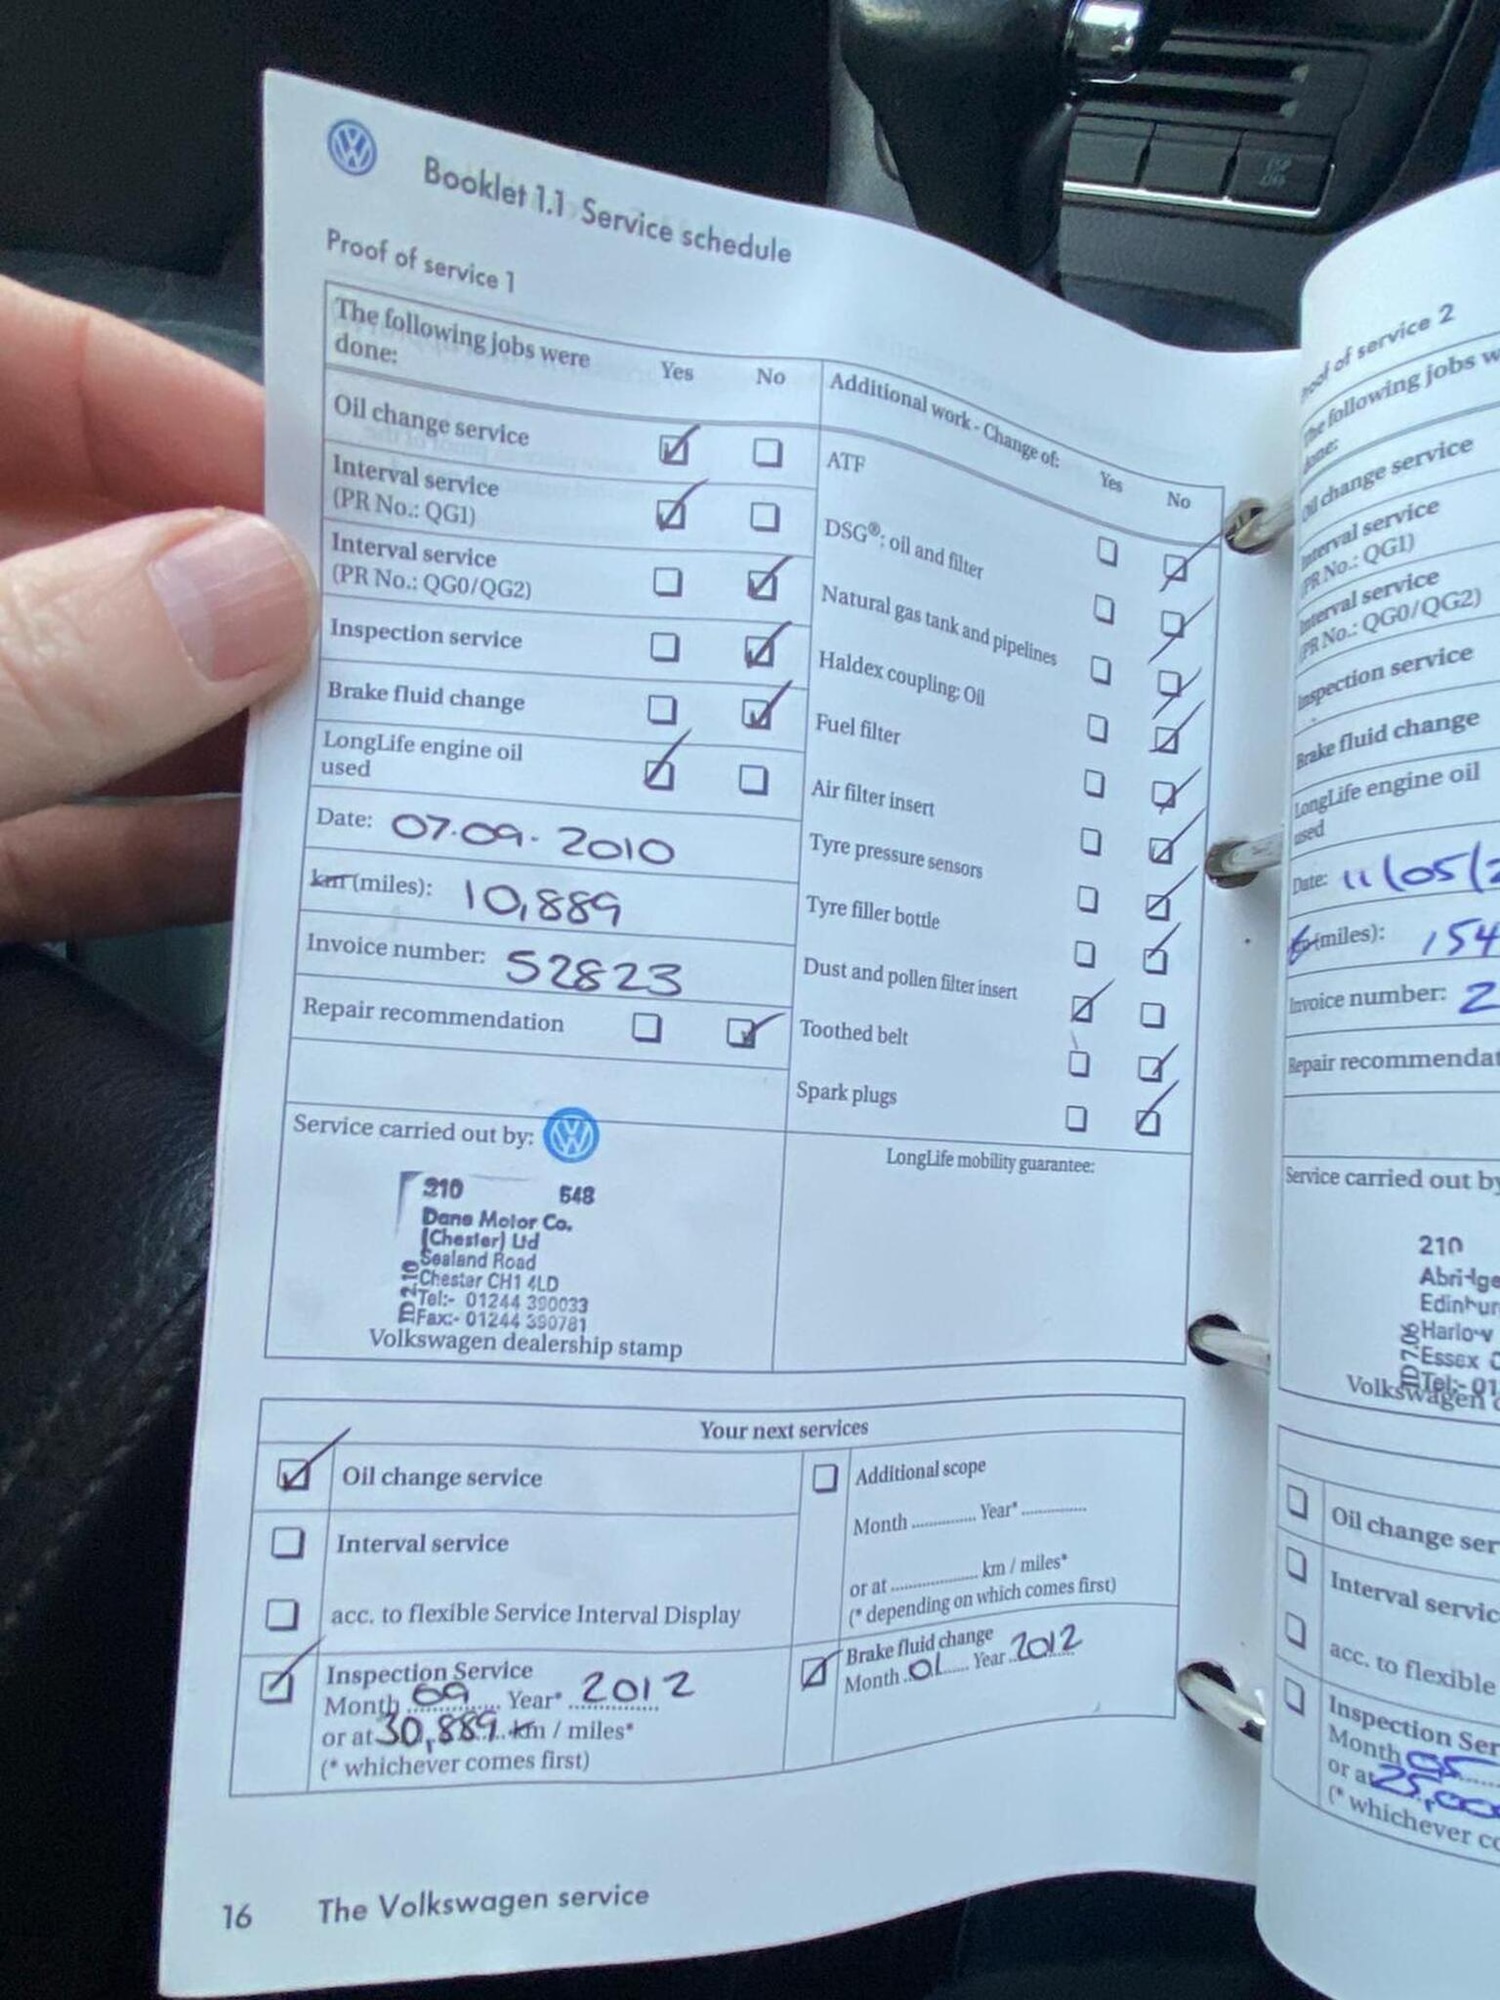 Booklet 1.1 Service schedule
Proof of service 1
The following jobs were
done:
Yes No
Oil change service
Interval service
(PR No.: QG1)
Interval service
(PR No.: QG0/QG2)
Inspection service
Brake fluid change
LongLife engine oil
used
Date: 07.09.2010
km (miles): 10,889
Invoice number: 52823
Repair recommendation
Service carried out by:
210 548
Dane Motor Co.
(Chester) Ltd
Sealand Road
Chester CH1 4LD
Tel:- 01244 390033
Fax:- 01244 390781
Volkswagen dealership stamp
Additional work - Change of:
Yes No
ATF
DSG®: oil and filter
Natural gas tank and pipelines
Haldex coupling: Oil
Fuel filter
Air filter insert
Tyre pressure sensors
Tyre filler bottle
Dust and pollen filter insert
Toothed belt
Spark plugs
LongLife mobility guarantee:
Your next services
Oil change service
Interval service
acc. to flexible Service Interval Display
Inspection Service
Month 09 Year* 2012
or at 30,889 km / miles*
(* whichever comes first)
Additional scope
Month ............... Year* ...............
or at .................... km / miles*
(* depending on which comes first)
Brake fluid change
Month 01 Year 2012
16 The Volkswagen service
Proof of service 2
The following jobs w
done:
Oil change service
Interval service
(PR No.: QG1)
Interval service
(PR No.: QG0/QG2)
Inspection service
Brake fluid change
LongLife engine oil
used
Date: 11/05/2
(miles): 154
Invoice number: 2
Repair recommendat
Service carried out by
210
Edinbur
Harlow
Essex C
Tel:- 01
Volkswagen
Oil change ser
Interval servic
acc. to flexible
Inspection Ser
Month 05
or at 25,000
(* whichever co